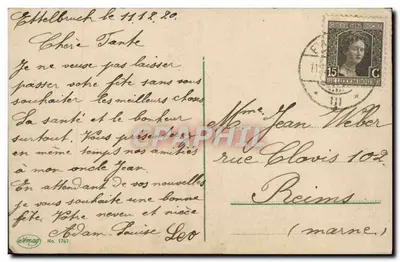 Ettelbruck le 11.12.20.
Chère Tante
Je ne veuse pas laisser
passer votre fête sans vous
souhaiter les meilleurs choses
La santé et le bonheur
surtout. Vous présenter
en même temps nos amitiés
à mon oncle Jean.
En attendant de vos nouvelles
je vous souhaite une bonne
fête. Votre neveu et nièce
Adam Louise Leo
No. 1761
15 C
Mme Jean Weber
rue Clovis 102
Reims
(marne)